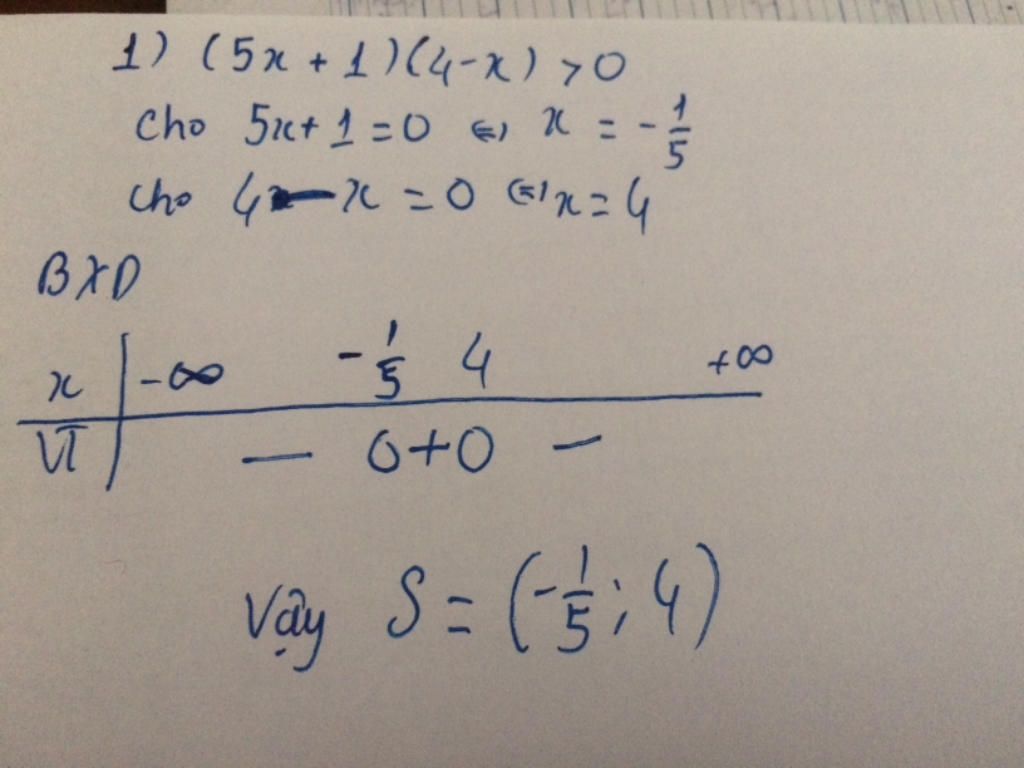 1) (5x + 1)(4-x) > 0
Cho 5x+1 = 0 ⇔ x = -1/5
Cho 4 - x = 0 ⇔ x = 4
BXD
x | -∞ -1/5 4 +∞
VT | - 0 + 0 -
Vậy S = (-1/5; 4)